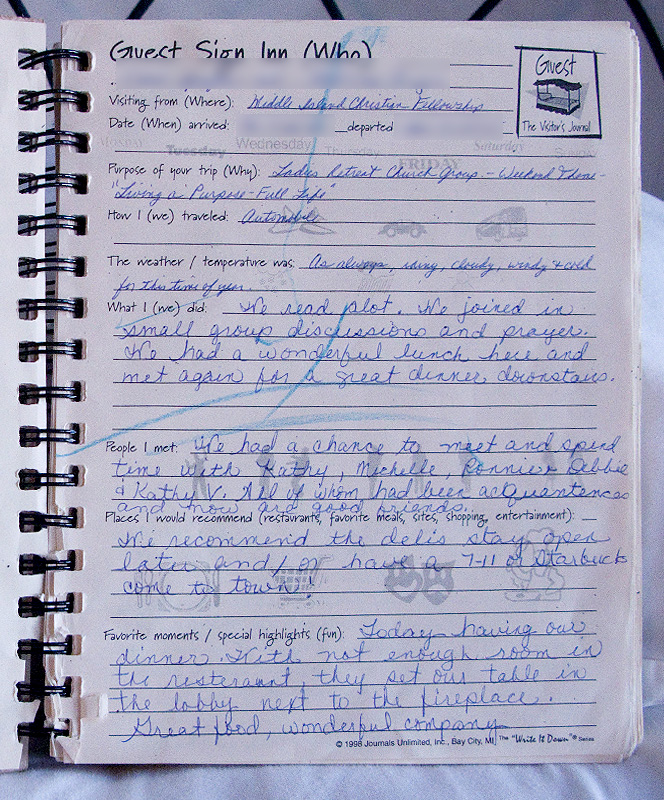 Guest Sign Inn (Who)
Guest
The Visitor's Journal
Visiting from (Where): Middle Island Christian Fellowship
Date (When) arrived: departed
Monday Tuesday Wednesday Thursday FRIDAY Saturday Sunday
Purpose of your trip (Why): Ladies Retreat Church Group - Weekend Theme -
"Living a Purpose-Full Life"
How I (we) traveled: Automobile
The weather / temperature was: As always, rainy, cloudy, windy & cold
for this time of year.
What I (we) did: We read alot. We joined in
small group discussions and prayer.
We had a wonderful lunch here and
met again for a great dinner downstairs.
People I met: We had a chance to meet and spend
time with Kathy, Michelle, Ronnie, Debbie
& Kathy V. All of whom had been acquantences
and now are good friends.
Places I would recommend (restaurants, favorite meals, sites, shopping, entertainment):
We recommend the deli's stay open
later and/or have a 7-11 or Starbucks
come to town!
Favorite moments / special highlights (fun): Today having our
dinner. With not enough room in
the resteraunt, they set our table in
the lobby next to the fireplace.
Great food, wonderful company
© 1998 Journals Unlimited, Inc., Bay City, MI, The "Write It Down"® Series